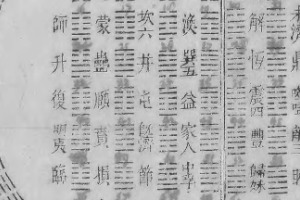 解 恆 震四 豐 歸妹
渙 巽五 益 家人 中孚
坎六 井 屯 既濟 節
蒙 蠱 頤 賁 損
師 升 復 明夷 臨